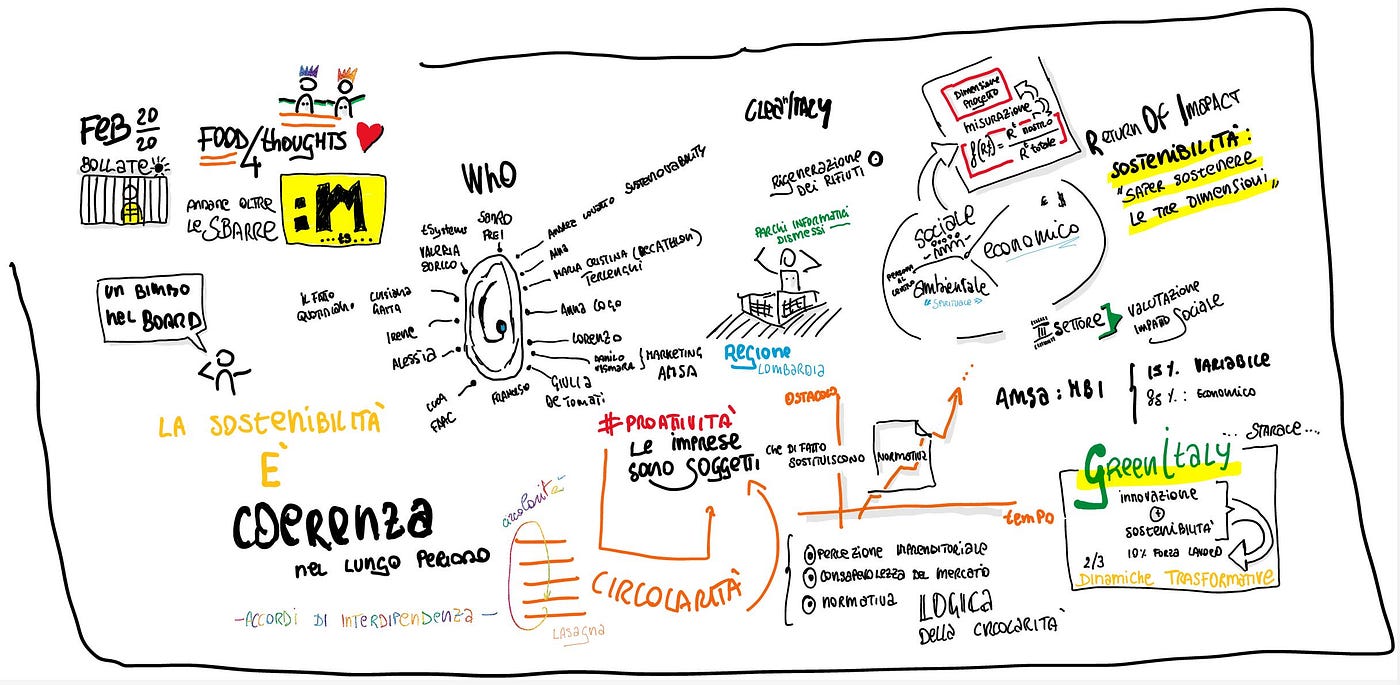 FEB 20
20
BOLLATE
FOOD 4 thoughts
ANDARE OLTRE
LE SBARRE
:M
...ts...
UN BIMBO
NEL BOARD
LA SOSTENIBILITÀ
È
COERENZA
NEL LUNGO PERIODO
-ACCORDI DI INTERDIPENDENZA-
WHO
tSystems
VALERIA
SANDRO
FREI
IL FATO
QUOTIDIANO
LUISIANA
GAITA
IRENE
ALESSIA
LUCA
FAAC
FRANCESCO
ANDREA LOVATO SUSTENOVABILITY
ANNA
MARIA CRISTINA (DECATHLON)
TERLENGHI
ANNA COGO
LORENZO
DANILO
VISMARA
MARKETING
AMSA
GIULIA
DETOMATI
#PROATTIVITÀ
LE IMPRESE
SONO SOGGETTI
CHE DI FATTO
SOSTITUISCONO
NORMATIVA
OSTACOLO
TEMPO
CIRCOLARITÀ
circolarità
LASAGNA
CLEAN ITALY
RIGENERAZIONE
DEI RIFIUTI
PARCHI INFORMATICI
DISMESSI
REGIONE
LOMBARDIA
PERCEZIONE IMPRENDITORIALE
CONSAPEVOLEZZA DEL MERCATO
NORMATIVA
LOGICA
DELLA CIRCOLARITÀ
DIMENSIONE
PROGETTO
MISURAZIONE
SOCIALE
ECONOMICO
€ $
PERSONA
AL
CENTRO
AMBIENTALE
"SPIRITUALE"
RETURN OF IMPACT
SOSTENIBILITÀ:
"SAPER SOSTENERE
LE TRE DIMENSIONI"
III SETTORE
VALUTAZIONE
IMPATTO SOCIALE
AMSA: MBI
15% VARIABILE
85%: ECONOMICO
... STARACE...
GREENITALY
INNOVAZIONE
+
SOSTENIBILITÀ
10% FORZA LAVORO
2/3
DINAMICHE TRASFORMATIVE